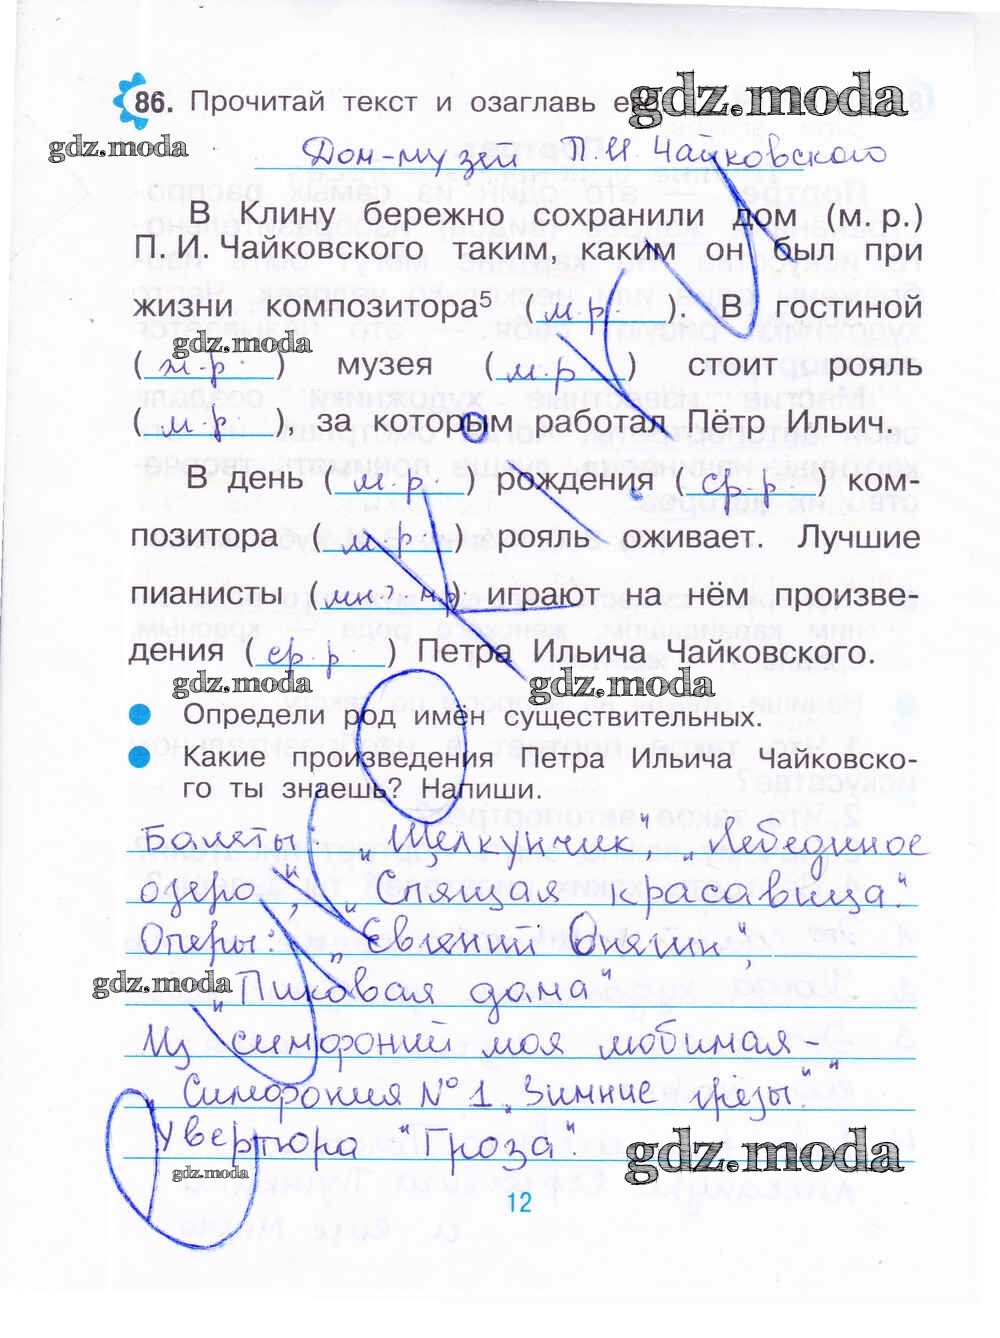 86. Прочитай текст и озаглавь его gdz.moda
gdz.moda Дом-музей П.И. Чайковского
В Клину бережно сохранили дом (м. р.)
П. И. Чайковского таким, каким он был при
жизни композитора⁵ (м.р.). В гостиной
gdz.moda
(ж.р.) музея (м.р) стоит рояль
(м.р.), за которым работал Пётр Ильич.
В день (м.р.) рождения (ср.р) ком-
позитора (м.р.) рояль оживает. Лучшие
пианисты (мн.) играют на нём произве-
дения (ср.р) Петра Ильича Чайковского.
gdz.moda gdz.moda
Определи род имён существительных.
Какие произведения Петра Ильича Чайковско-
го ты знаешь? Напиши.
Балеты: „Щелкунчик", „Лебединое
озеро", „Спящая красавица".
Оперы: „Евгений Онегин",
gdz.moda „Пиковая дама"
Из симфоний моя любимая -
„Симфония №1 „Зимние грёзы"."
Увертюра "Гроза".
gdz.moda gdz.moda
12